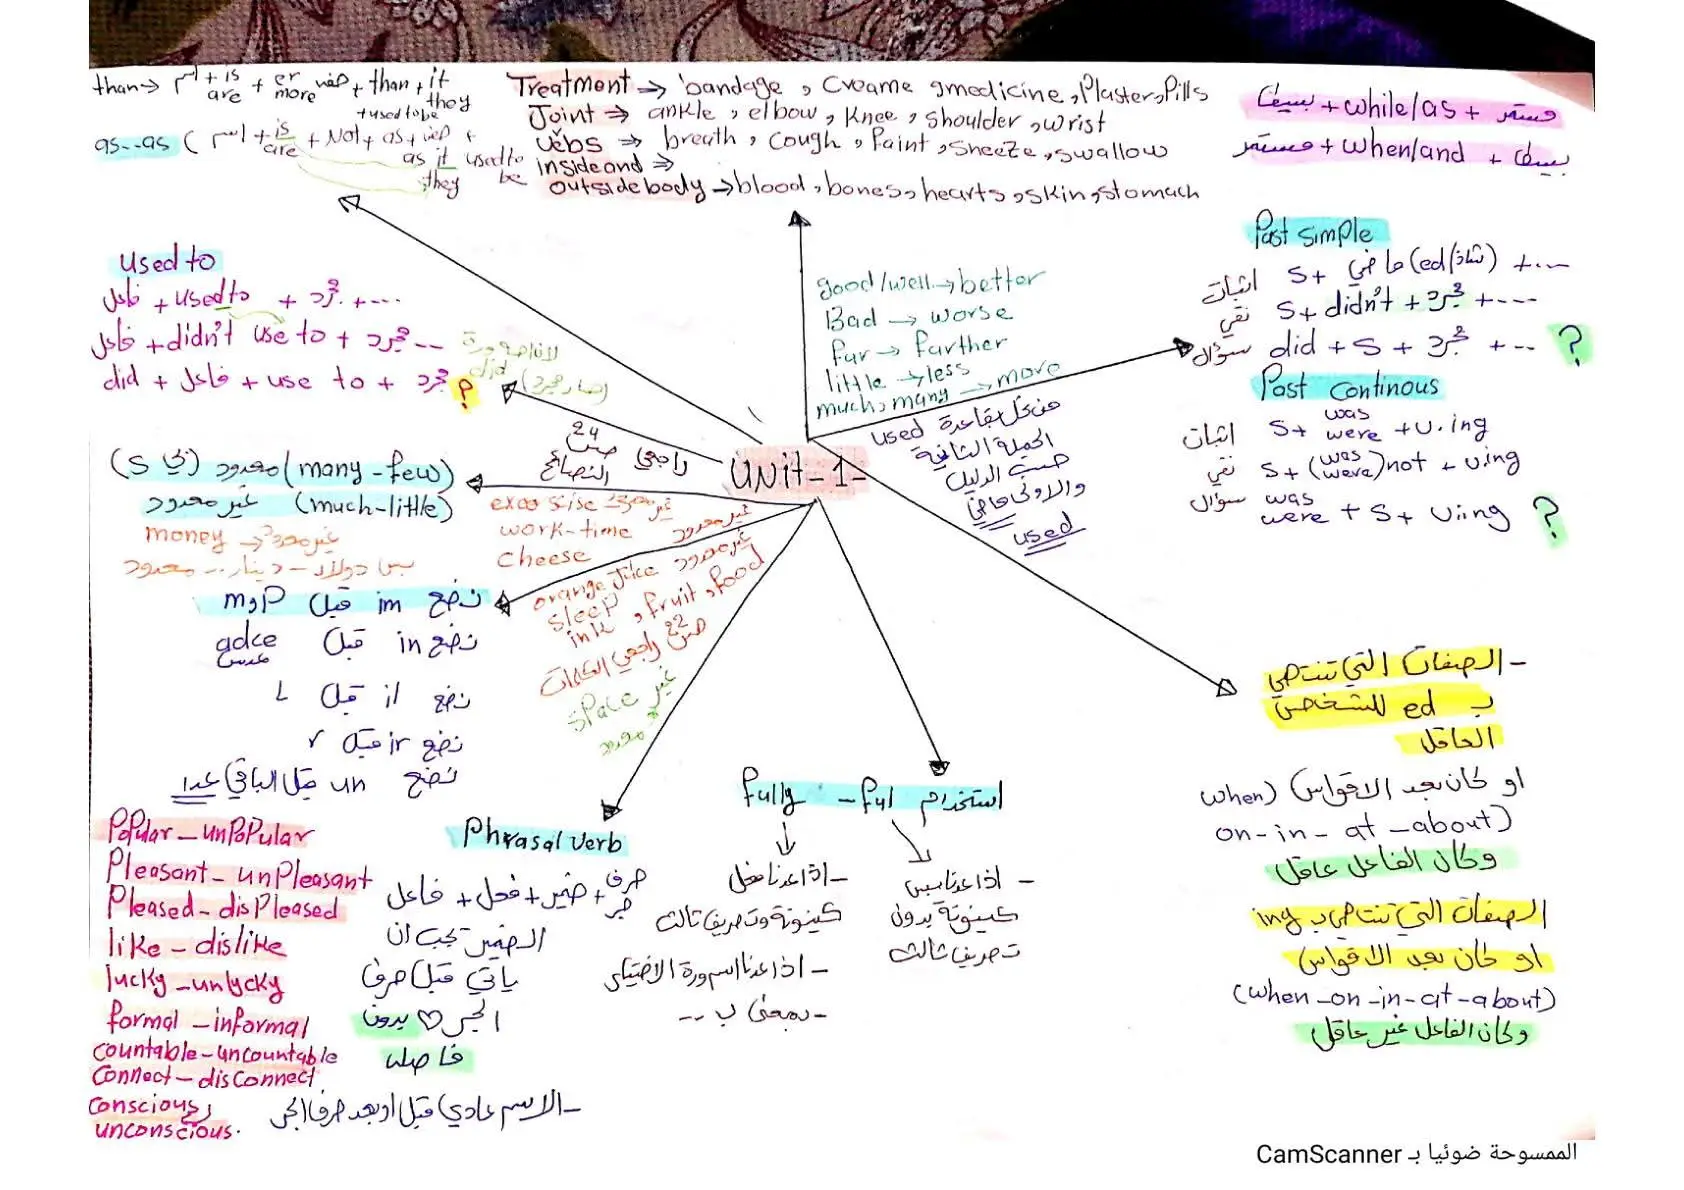 than → اسم + is are + er more صفة + than + it they + used to be
as..as ( اسم + is are + Not + as + صفة + as it they used to be
Treatment → bandage , Creame , medicine , Plaster , Pills
Joint → ankle , elbow , Knee , shoulder , wrist
Vebs → breath , Cough , Faint , sneeze , swallow
inside and →
outside body → blood , bones , hearts , skin , stomach
بسيط + while/as + مستمر
مستمر + when/and + بسيط
Used to
فاعل + used to + مجرد + ....
فاعل + didn't use to + مجرد --
did + فاعل + use to + مجرد ?
لأنه صورة did (صار مجرد)
good/well → better
Bad → worse
far → farther
little → less
much, many → more
Past simple
اثبات S + ماضي (ed/شاذ) + ....
نفي S + didn't + مجرد + ....
سؤال did + S + مجرد + ... ?
Past Continous
اثبات S + was were + v.ing
نفي S + (was were) not + ving
سؤال was were + S + Viing ?
UNit-1-
من كل بقاعدة used
الجملة الثانية
حسب الدليل
والاولى ماضي
used
معدود (many-few) (في S)
غير معدود (much-little)
money → غير معدود
بس دولار - دينار .. معدود
راجعي ص 24
النصائح
excersise غير معدود
work-time غير معدود
cheese
orange Juice غير معدود
sleep , fruit , food
ink
ص 22 راجعي الكلمات
space غير معدود
نضع im قبل m و P
نضع in قبل adce
عدس
نضع il قبل L
نضع ir قبل r
نضع un قبل الباقي عدا
Popular - unPoPular
Pleasant - unPleasant
Pleased - disPleased
like - dislike
lucky - unlycky
formal - informal
countable - uncountable
Connect - disConnect
Conscious
unconscious.
Phrasal verb
فاعل + فعل + ضمير + حرف جر
الضمير يجب ان
يأتي قبل حرف
الجر ♡ بدون
فاصله
- الاسم عادي قبل او بعد حرف الجر
استخدام ful - fully
- اذا عنا فعل
كينونة وتصريف ثالث
- اذا عنا اسم ورة الاختيار
- بمعنى ب ..
- اذا عنا بس
كينونة بدون
تصريف ثالث
- الصفات التي تنتهي
ب ed للشخص
العاقل
او كان بعد الاقواس (when
on-in-at-about)
وكان الفاعل عاقل
الصفات التي تنتهي ب ing
او كان بعد الاقواس
(when-on-in-at-about)
وكان الفاعل غير عاقل
الممسوحة ضوئيا بـ CamScanner